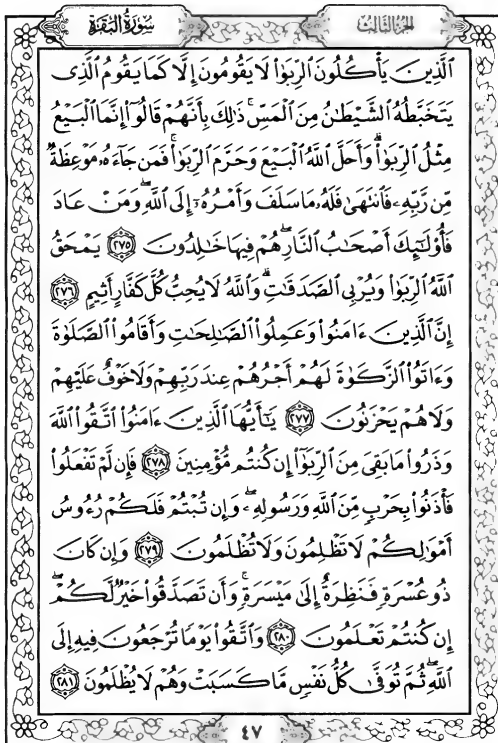 الجزء الثالث
سورة البقرة
الَّذِينَ يَأْكُلُونَ الرِّبَوٰا۟ لَا يَقُومُونَ إِلَّا كَمَا يَقُومُ الَّذِى
يَتَخَبَّطُهُ الشَّيْطَٰنُ مِنَ الْمَسِّ ۚ ذَٰلِكَ بِأَنَّهُمْ قَالُوٓا۟ إِنَّمَا الْبَيْعُ
مِثْلُ الرِّبَوٰا۟ ۗ وَأَحَلَّ اللَّهُ الْبَيْعَ وَحَرَّمَ الرِّبَوٰا۟ ۚ فَمَن جَآءَهُۥ مَوْعِظَةٌ
مِّن رَّبِّهِۦ فَٱنتَهَىٰ فَلَهُۥ مَا سَلَفَ وَأَمْرُهُۥٓ إِلَى اللَّهِ ۖ وَمَنْ عَادَ
فَأُو۟لَٰٓئِكَ أَصْحَٰبُ النَّارِ ۖ هُمْ فِيهَا خَٰلِدُونَ ٢٧٥ يَمْحَقُ
اللَّهُ الرِّبَوٰا۟ وَيُرْبِى الصَّدَقَٰتِ ۗ وَاللَّهُ لَا يُحِبُّ كُلَّ كَفَّارٍ أَثِيمٍ ٢٧٦
إِنَّ الَّذِينَ ءَامَنُوا۟ وَعَمِلُوا۟ الصَّٰلِحَٰتِ وَأَقَامُوا۟ الصَّلَوٰةَ
وَءَاتَوُا۟ الزَّكَوٰةَ لَهُمْ أَجْرُهُمْ عِندَ رَبِّهِمْ وَلَا خَوْفٌ عَلَيْهِمْ
وَلَا هُمْ يَحْزَنُونَ ٢٧٧ يَٰٓأَيُّهَا الَّذِينَ ءَامَنُوا۟ اتَّقُوا۟ اللَّهَ
وَذَرُوا۟ مَا بَقِىَ مِنَ الرِّبَوٰٓا۟ إِن كُنتُم مُّؤْمِنِينَ ٢٧٨ فَإِن لَّمْ تَفْعَلُوا۟
فَأْذَنُوا۟ بِحَرْبٍ مِّنَ اللَّهِ وَرَسُولِهِۦ ۖ وَإِن تُبْتُمْ فَلَكُمْ رُءُوسُ
أَمْوَٰلِكُمْ لَا تَظْلِمُونَ وَلَا تُظْلَمُونَ ٢٧٩ وَإِن كَانَ
ذُو عُسْرَةٍ فَنَظِرَةٌ إِلَىٰ مَيْسَرَةٍ ۚ وَأَن تَصَدَّقُوا۟ خَيْرٌ لَّكُمْ ۖ
إِن كُنتُمْ تَعْلَمُونَ ٢٨٠ وَاتَّقُوا۟ يَوْمًا تُرْجَعُونَ فِيهِ إِلَى
اللَّهِ ۖ ثُمَّ تُوَفَّىٰ كُلُّ نَفْسٍ مَّا كَسَبَتْ وَهُمْ لَا يُظْلَمُونَ ٢٨١
٤٧